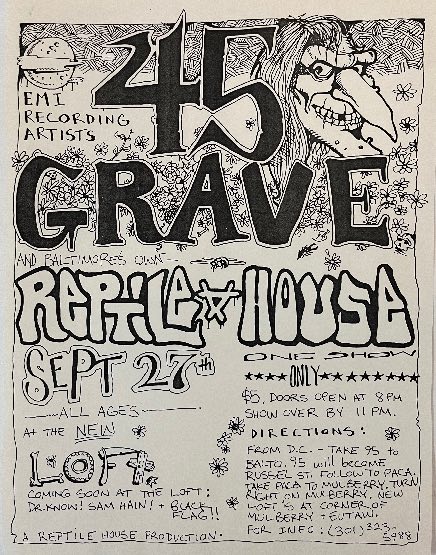 45
GRAVE
EMI
RECORDING
ARTISTS
AND BALTIMORE'S OWN--
REPTILE HOUSE
SEPT 27th
ONE SHOW
ONLY
ALL AGES
AT THE NEW
LOFT.
COMING SOON AT THE LOFT:
DR.KNOW! SAM HAIN! + BLACK
FLAG!!
A REPTILE HOUSE PRODUCTION.
$5. DOORS OPEN AT 8PM
SHOW OVER BY 11 PM.
DIRECTIONS:
FROM D.C. - TAKE 95 TO
BALTO. 95 WILL BECOME
RUSSEL ST. FOLLOW TO PACA.
TAKE PACA TO MULBERRY. TURN
RIGHT ON MULBERRY. NEW
LOFT IS AT CORNER OF
MULBERRY + EUTAW.
FOR INFO: (301) 323-
5988